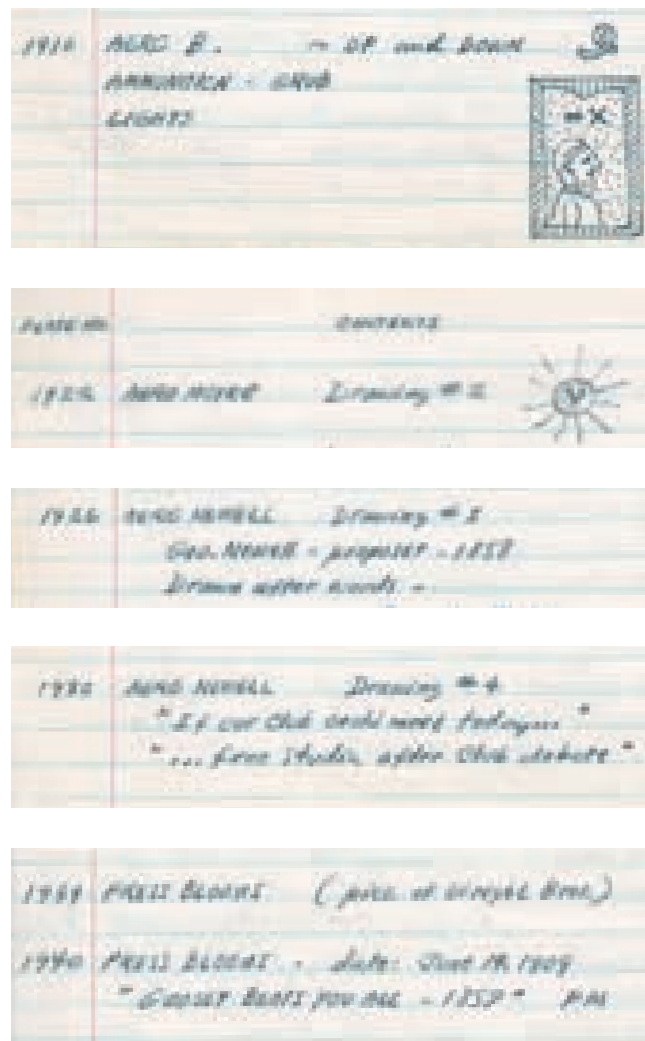 AERO B. - UP and DOWN
AMMUNITION - GRUB
LIGHTS
PLATE NO. CONTENTS
AERO Drawing #
1926 AERO NEWELL Drawing #
Geo. NEWELL - proposer - 1858
Drawn after words -
AERO NEWELL Drawing # 4
"If our Club could meet today... "
"... from Studio, after Club debate "
PRESS BLOOMS (pict. of Wright Bros.)
1940 PRESS BLOOMS - date: June 14, 1909
" GOOSEY BEATS YOU ALL - 1857 "